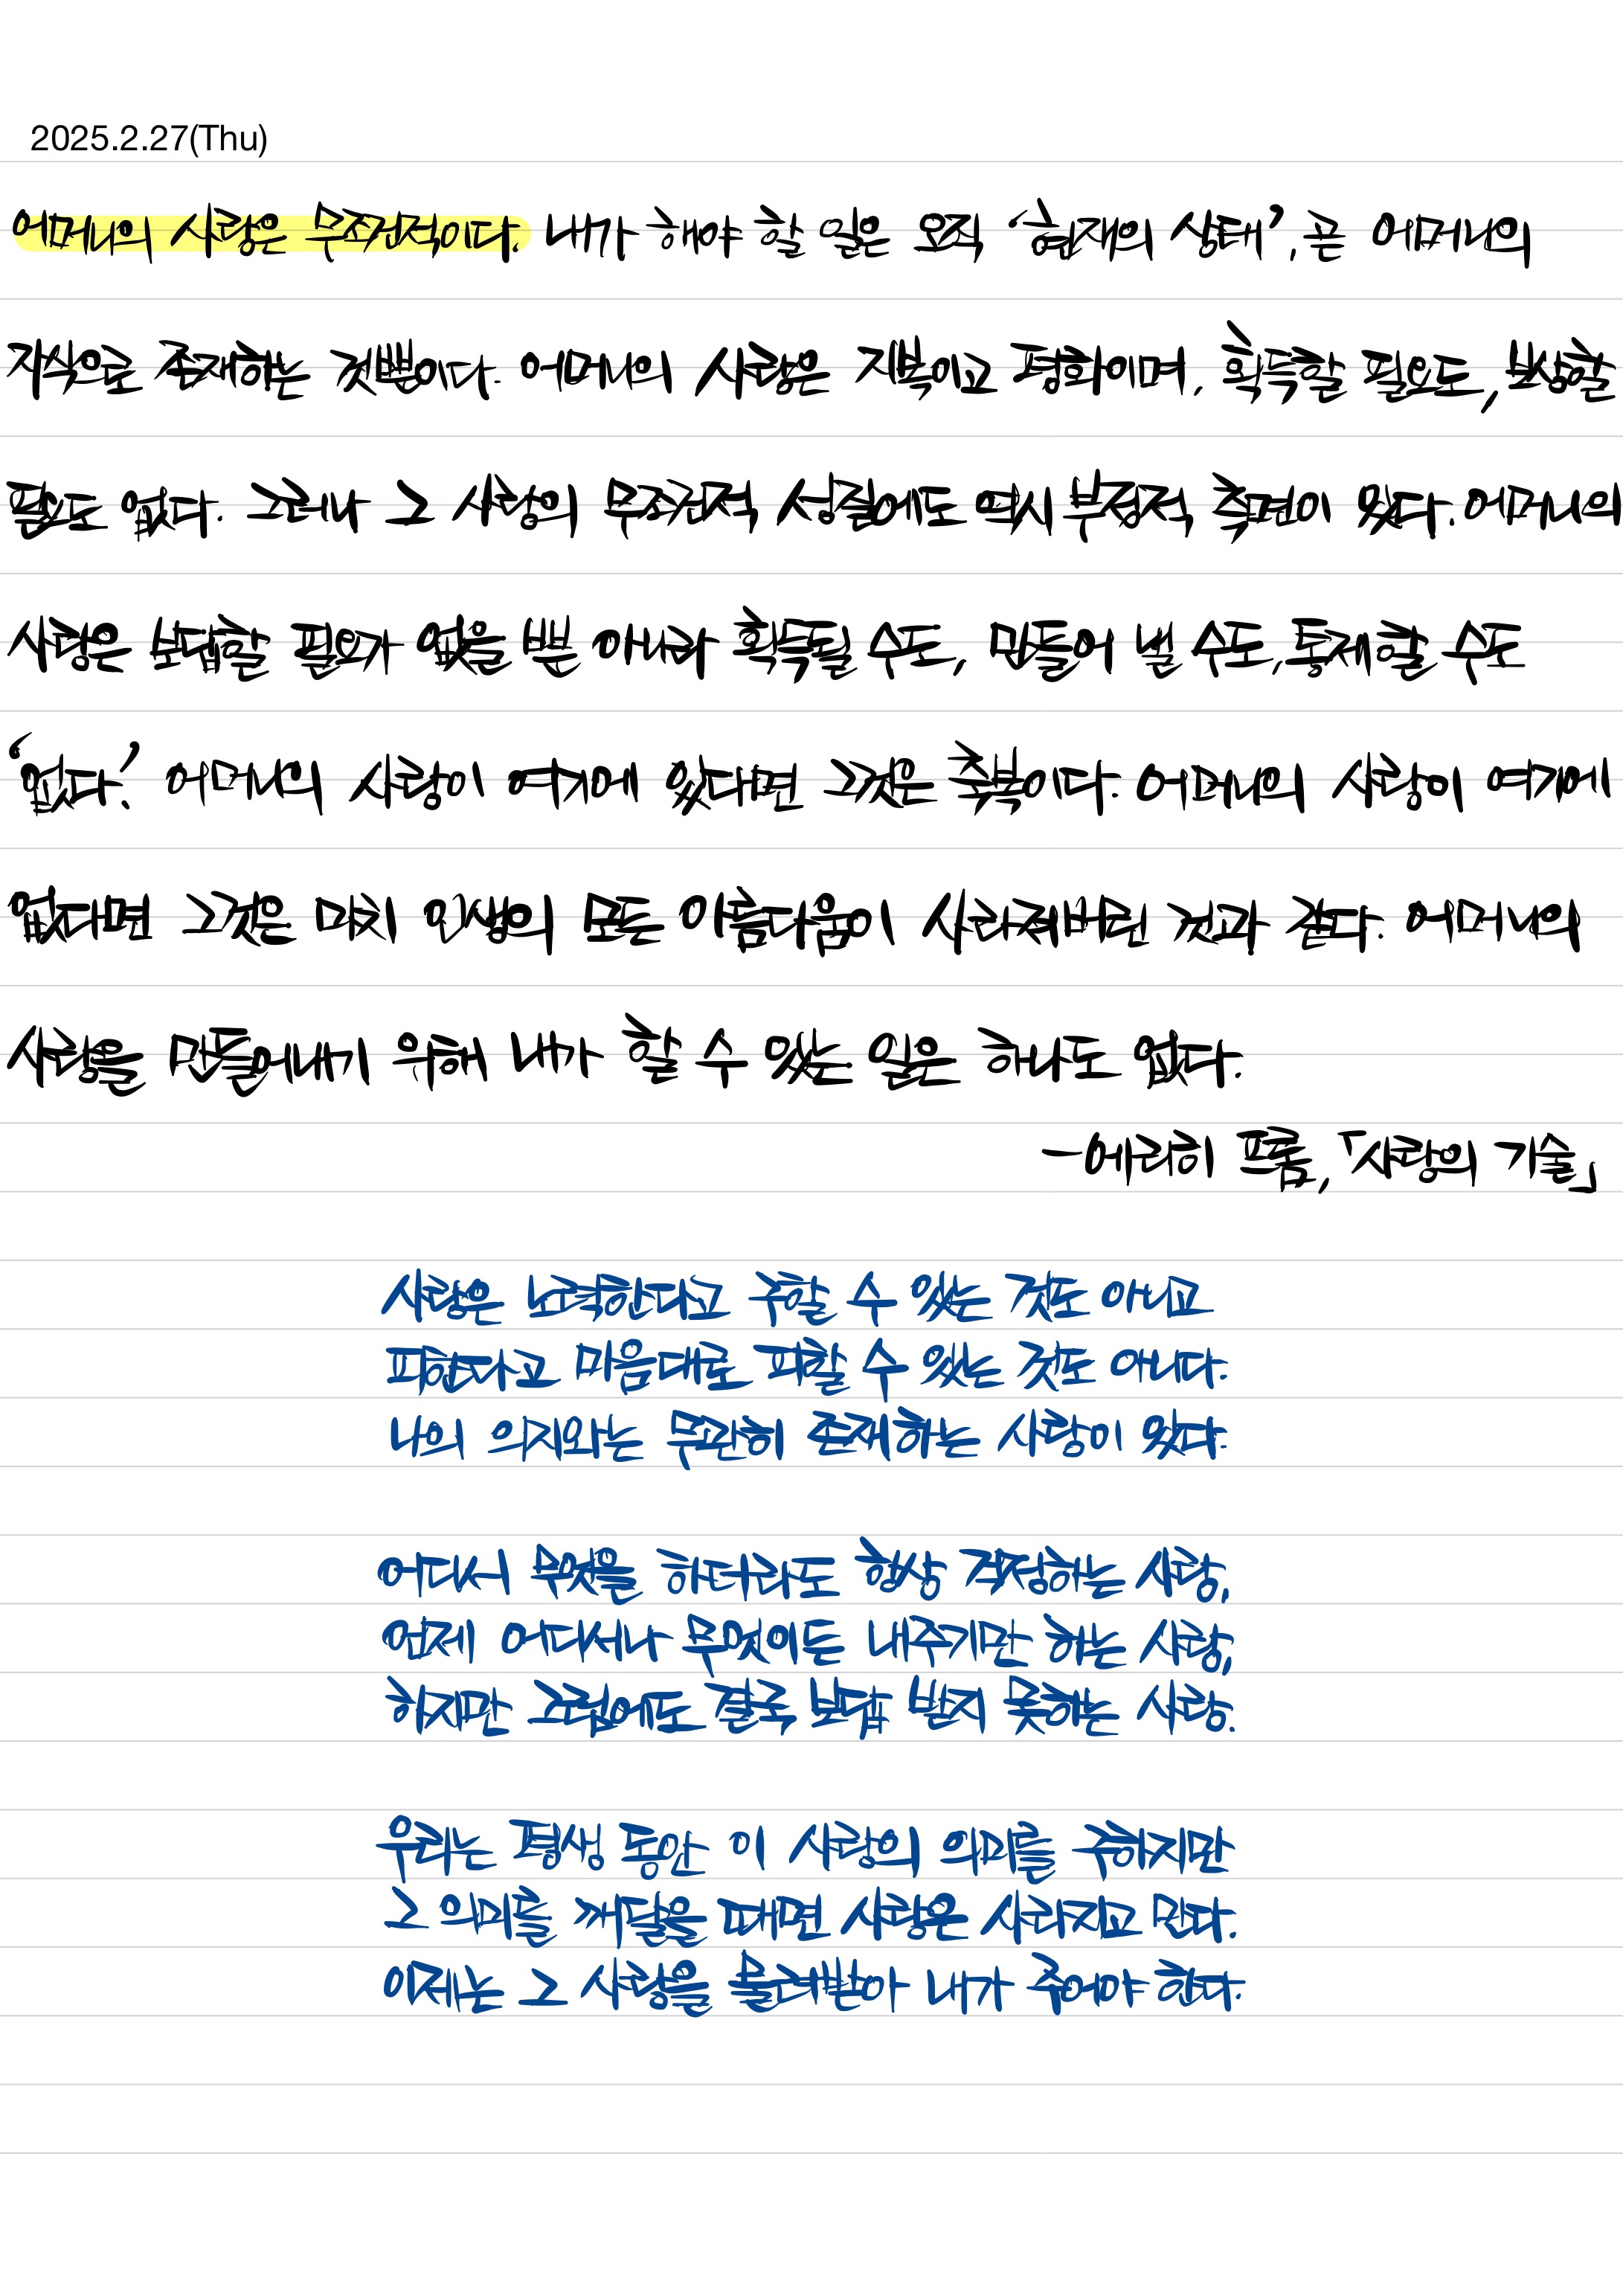 2025.2.27(Thu)
어머니의 사랑은 무조건적이다. 내가 해야 할 일은 오직 ‘현재의 상태’, 곧 어머니의
자식으로 존재하는 것뿐이다. 어머니의 사랑은 지복이고 평화이며, 획득할 필요도, 보상할
필요도 없다. 그러나 그 사랑의 무조건적 성질에도 역시 부정적 측면이 있다. 어머니의
사랑은 보답할 필요가 없을 뿐 아니라 획득될 수도, 만들어 낼 수도, 통제할 수도
‘없다.’ 어머니의 사랑이 여기에 있다면 그것은 축복이다. 어머니의 사랑이 여기에
없다면 그것은 마치 인생의 모든 아름다움이 사라져버린 것과 같다. 어머니의
사랑을 만들어내기 위해 내가 할 수 있는 일은 하나도 없다.
-에리히 프롬, 「사랑의 기술」
사랑은 노력한다고 구할 수 있는 것도 아니고
피한다고 마음대로 피할 수 있는 것도 아니다.
나의 의지와는 무관히 존재하는 사랑이 있다.
어디서 무엇을 하더라도 항상 걱정하는 사랑,
언제 어디서나 무엇이든 내주기만 하는 사랑,
하지만 그럼에도 결국 보답 받지 못하는 사랑.
우리는 평생 동안 이 사랑의 의미를 구하지만
그 의미를 깨달을 때면 사랑은 사라지고 만다.
이제는 그 사랑을 물려받아 내가 주어야 한다.